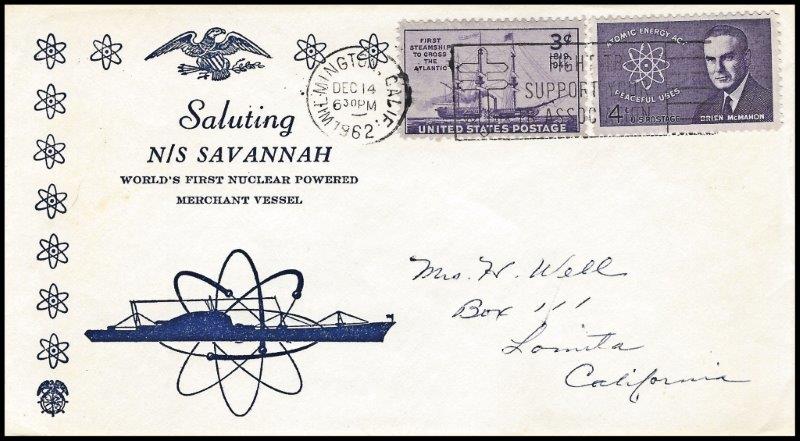 Saluting
N/S SAVANNAH
WORLD'S FIRST NUCLEAR POWERED
MERCHANT VESSEL
WILMINGTON, CALIF.
DEC 14
6 30 PM
1962
FIRST
STEAMSHIP
TO CROSS
THE
ATLANTIC
3¢
1819
1944
UNITED STATES POSTAGE
ATOMIC ENERGY ACT
PEACEFUL USES
4¢ U.S. POSTAGE
BRIEN McMAHON
FIGHT TB
SUPPORT YOUR
TB ASSOCIATION
Mrs. H. Well
Box 111
Lomita
California